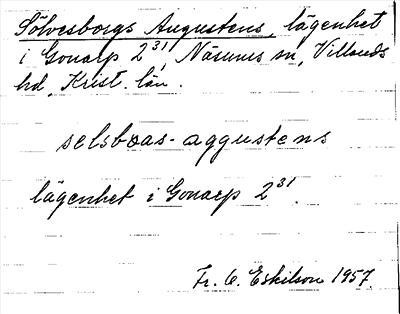 Sölvesborgs Augustens, lägenhet
i Gonarp 2³¹, Näsums sn, Villands
hd, Krist. län.
selsboas-aggustens
lägenhet i Gonarp 2³¹.
Fr. C. Eskilson 1957.